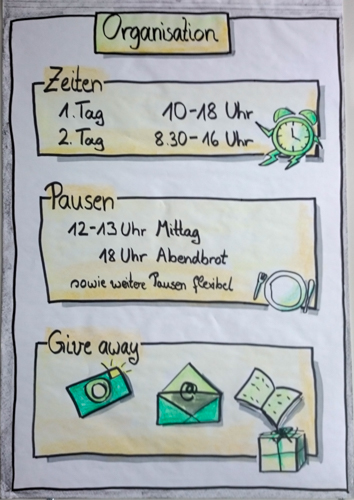 Organisation
Zeiten
1. Tag 10-18 Uhr
2. Tag 8.30-16 Uhr
Pausen
12-13 Uhr Mittag
18 Uhr Abendbrot
sowie weitere Pausen flexibel
Give away
@